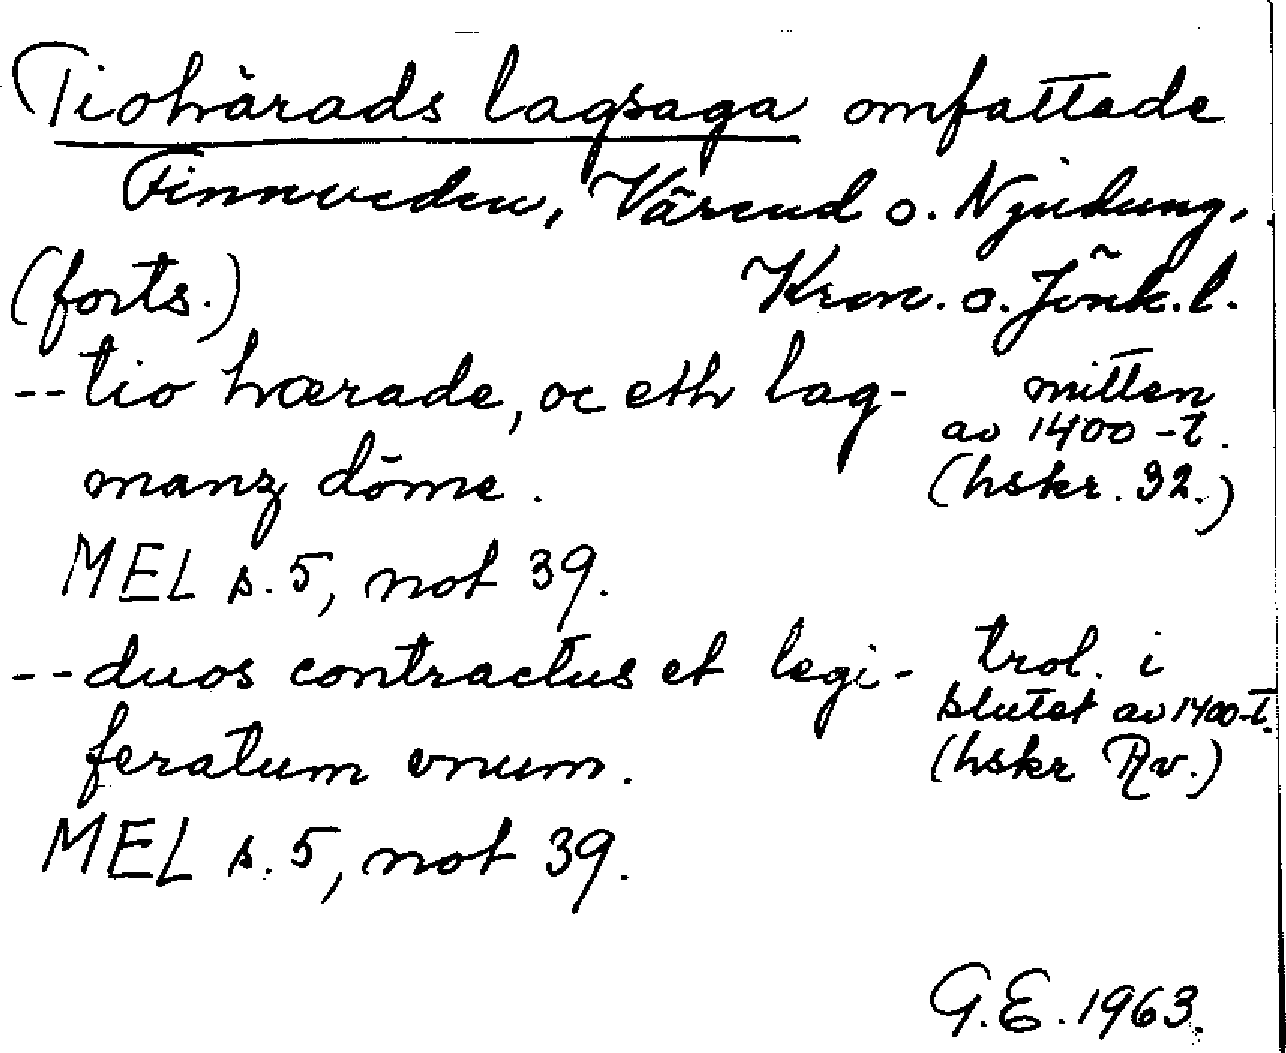 Tiohärads lagsaga omfattade
Finnveden, Värend o. Njudung.
(forts.) Kron. o. Jönk.l.
--tio hærade, oc eth lag- mitten
av 1400-t.
manz döme. (hskr. 32.)
MEL s. 5, not 39.
--duos contractus et legi- trol. i
slutet av 1400-t.
feratum vnum. (hskr Rv.)
MEL s. 5, not 39.
G.E. 1963.